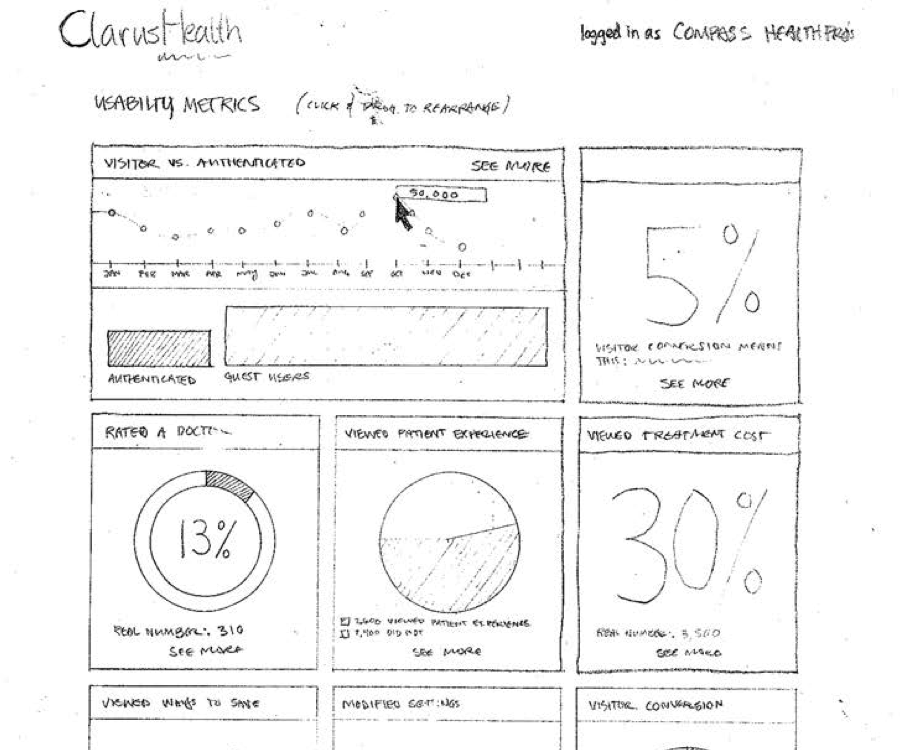 ClarusHealth
logged in as COMPASS HEALTH PROS
USABILITY METRICS (CLICK & DRAG TO REARRANGE)
VISITOR VS. AUTHENTICATED SEE MORE
50,000
JAN FEB MAR APR MAY JUN JUL AUG SEP OCT NOV DEC
AUTHENTICATED GUEST USERS
5%
VISITOR CONVERSION MEANS
THIS:
SEE MORE
RATED A DOCTOR
13%
REAL NUMBER: 310
SEE MORE
VIEWED PATIENT EXPERIENCE
VIEWED PATIENT EXPERIENCE
DID NOT
SEE MORE
VIEWED TREATMENT COST
30%
REAL NUMBER:
SEE MORE
VIEWED WAYS TO SAVE
MODIFIED SETTINGS
VISITOR CONVERSION